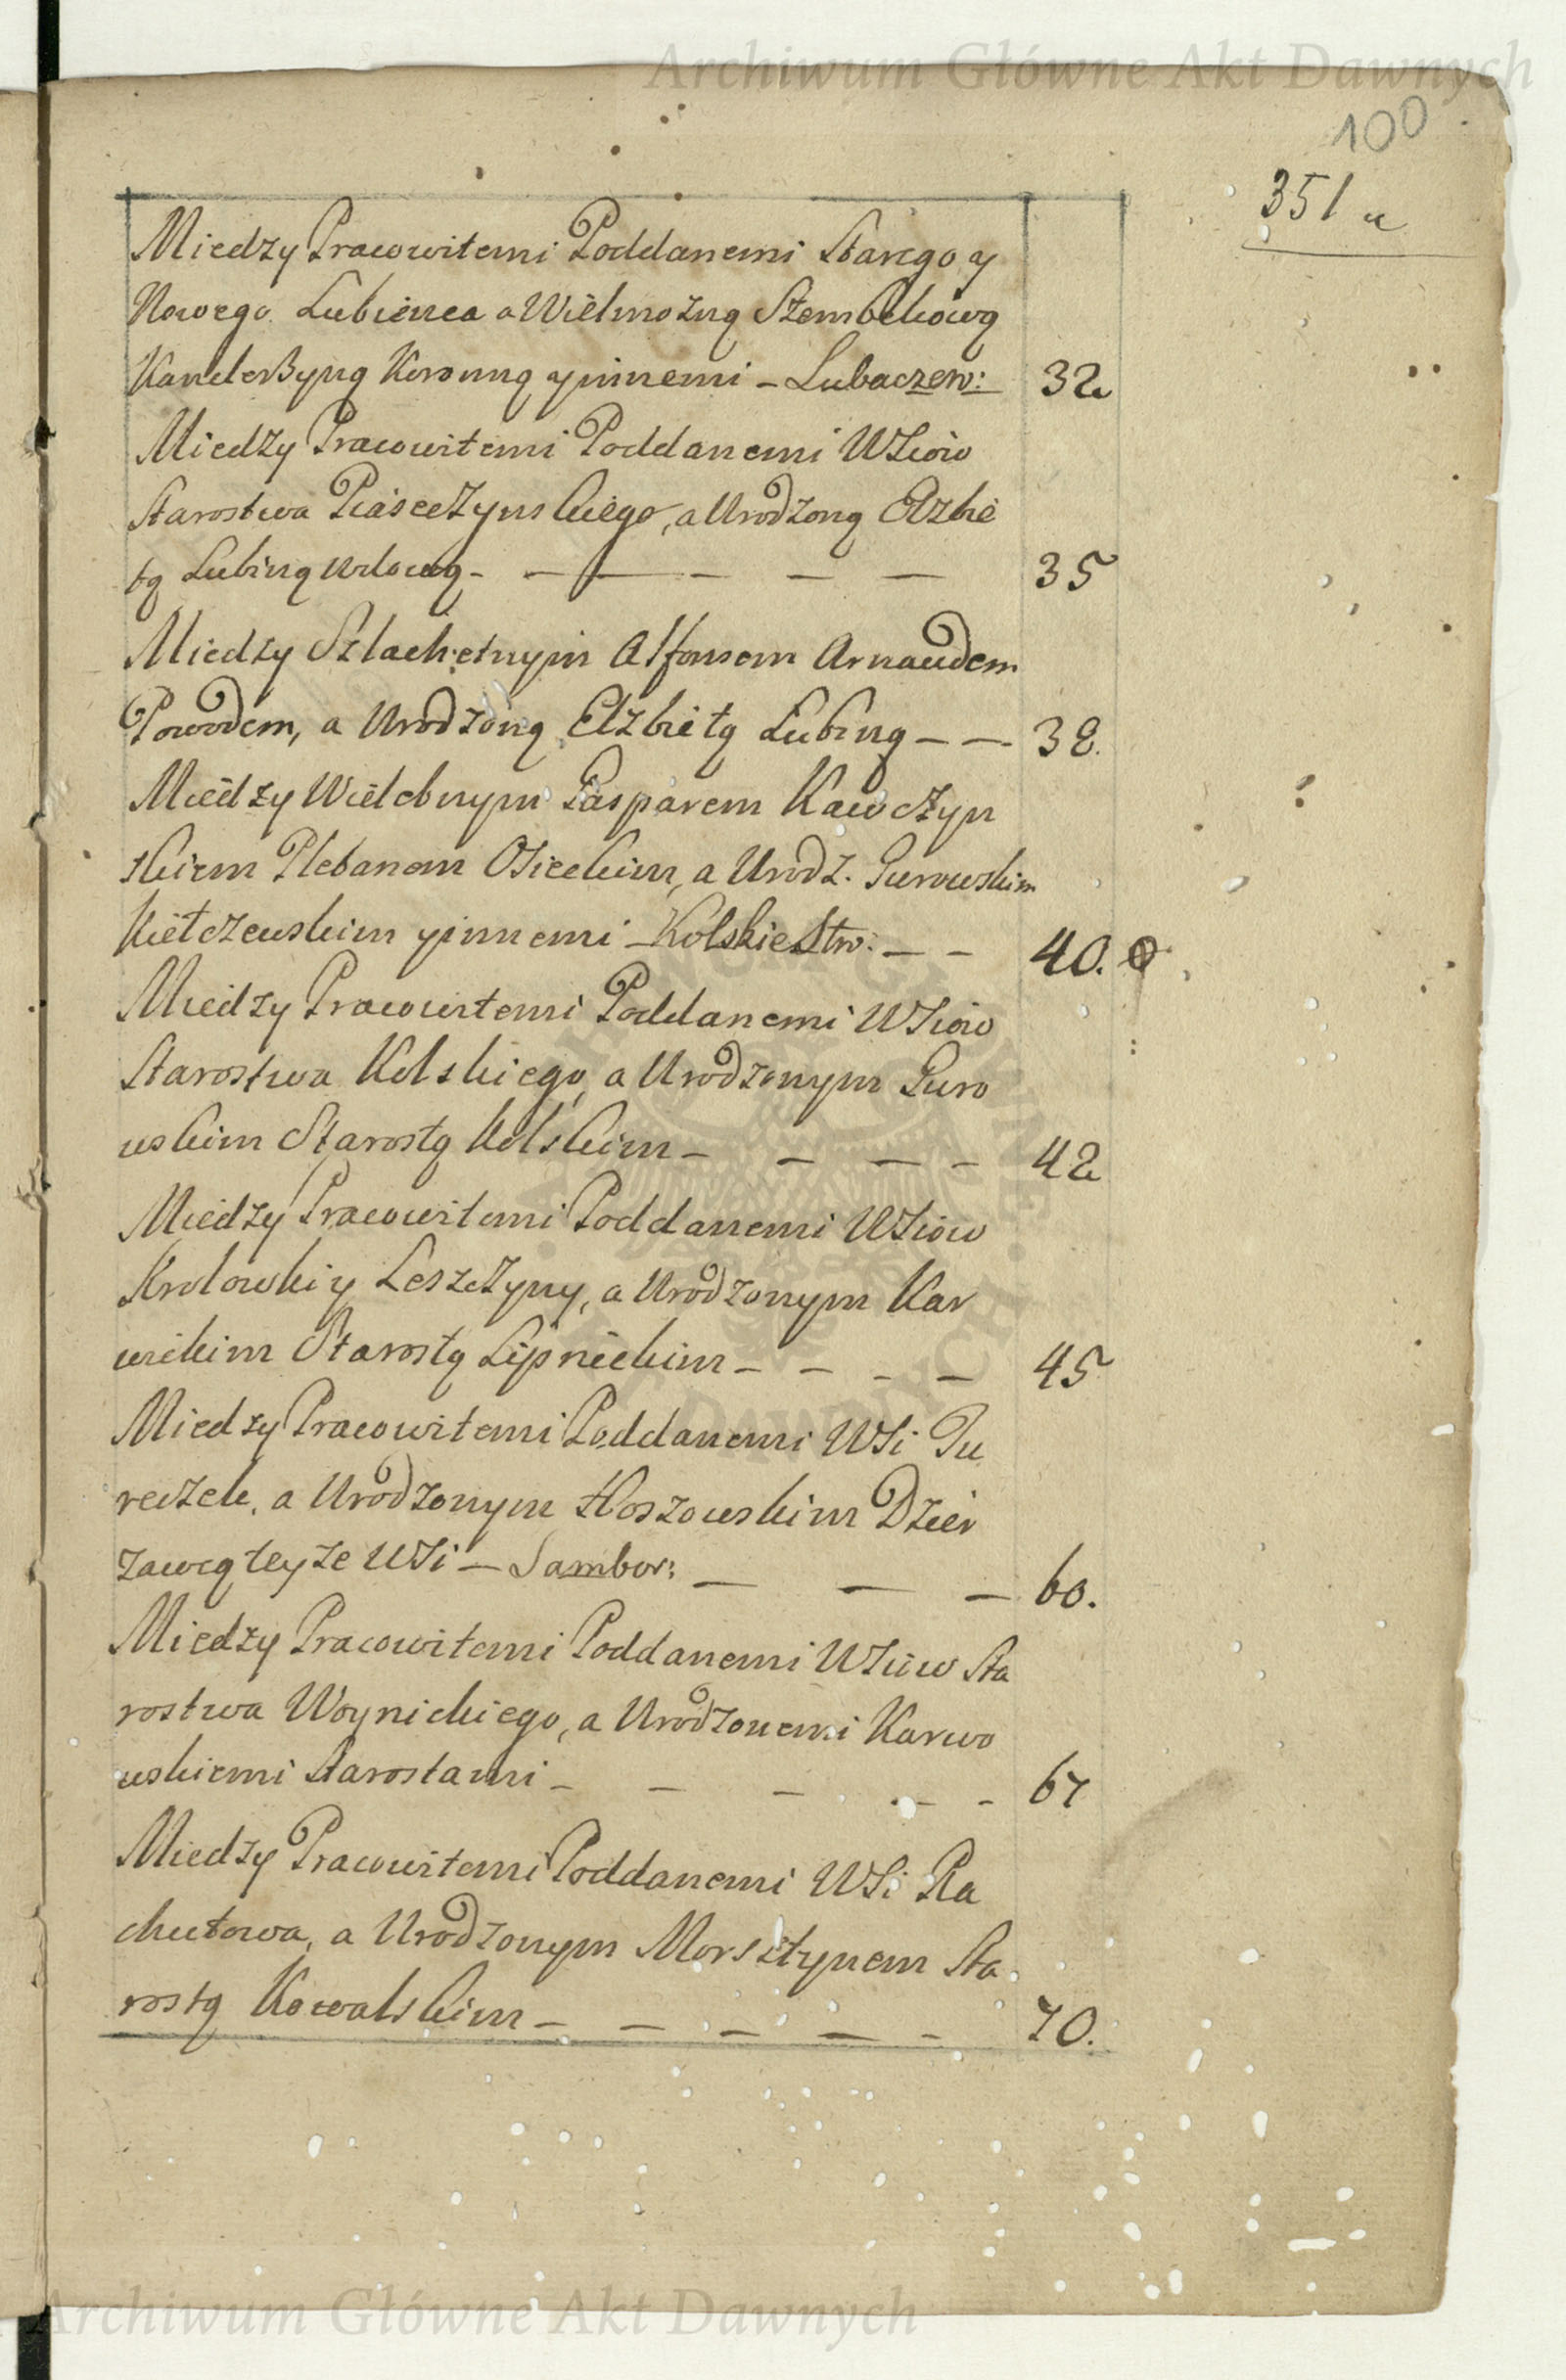 Archiwum Główne Akt Dawnych
100
351 a
Miedzy Pracowitemi Poddanemi Starego y
Nowego Lubienca a Wielmozną Szembekową
Kanclerszyną Koronną y innemi – Lubaczew: 32
Miedzy Pracowitemi Poddanemi Wsiow
Starostwa Piaseczynskiego, a Urodzoną Elzbie
tą Lubiną Wdową – – – – – – 35
Miedzy Szlachetnym Alfonsem Arnaudem
Powodem, a Urodzoną Elzbietą Lubiną – – 38.
Miedzy Wielebnym Gasparem Kawczyn
skiem Plebanem Osieckim, a Urodz. Gurowskim
Kiełczewskim y innemi – Kolskie Stwo: – – 40.
Miedzy Pracowitemi Poddanemi Wsiow
Starostwa Kolskiego, a Urodzonym Guro
wskim Starostą Kolskim – – – – 42
Miedzy Pracowitemi Poddanemi Wsiow
Krolowki y Leszczyny, a Urodzonym Kar
wickim Starostą Lipnickim – – – – 45
Miedzy Pracowitemi Poddanemi Wsi Tu
reczek, a Urodzonym Hoszowskim Dzier
zawcą teyze Wsi – Sambor: – – – 60.
Miedzy Pracowitemi Poddanemi Wsiow Sta
rostwa Woynickiego, a Urodzonemi Karwo
wskiemi Starostami – – – – – 67
Miedzy Pracowitemi Poddanemi Wsi Ra
chutowa, a Urodzonym Morsztynem Sta
rostą Kowalskim – – – – – 70.
Archiwum Główne Akt Dawnych